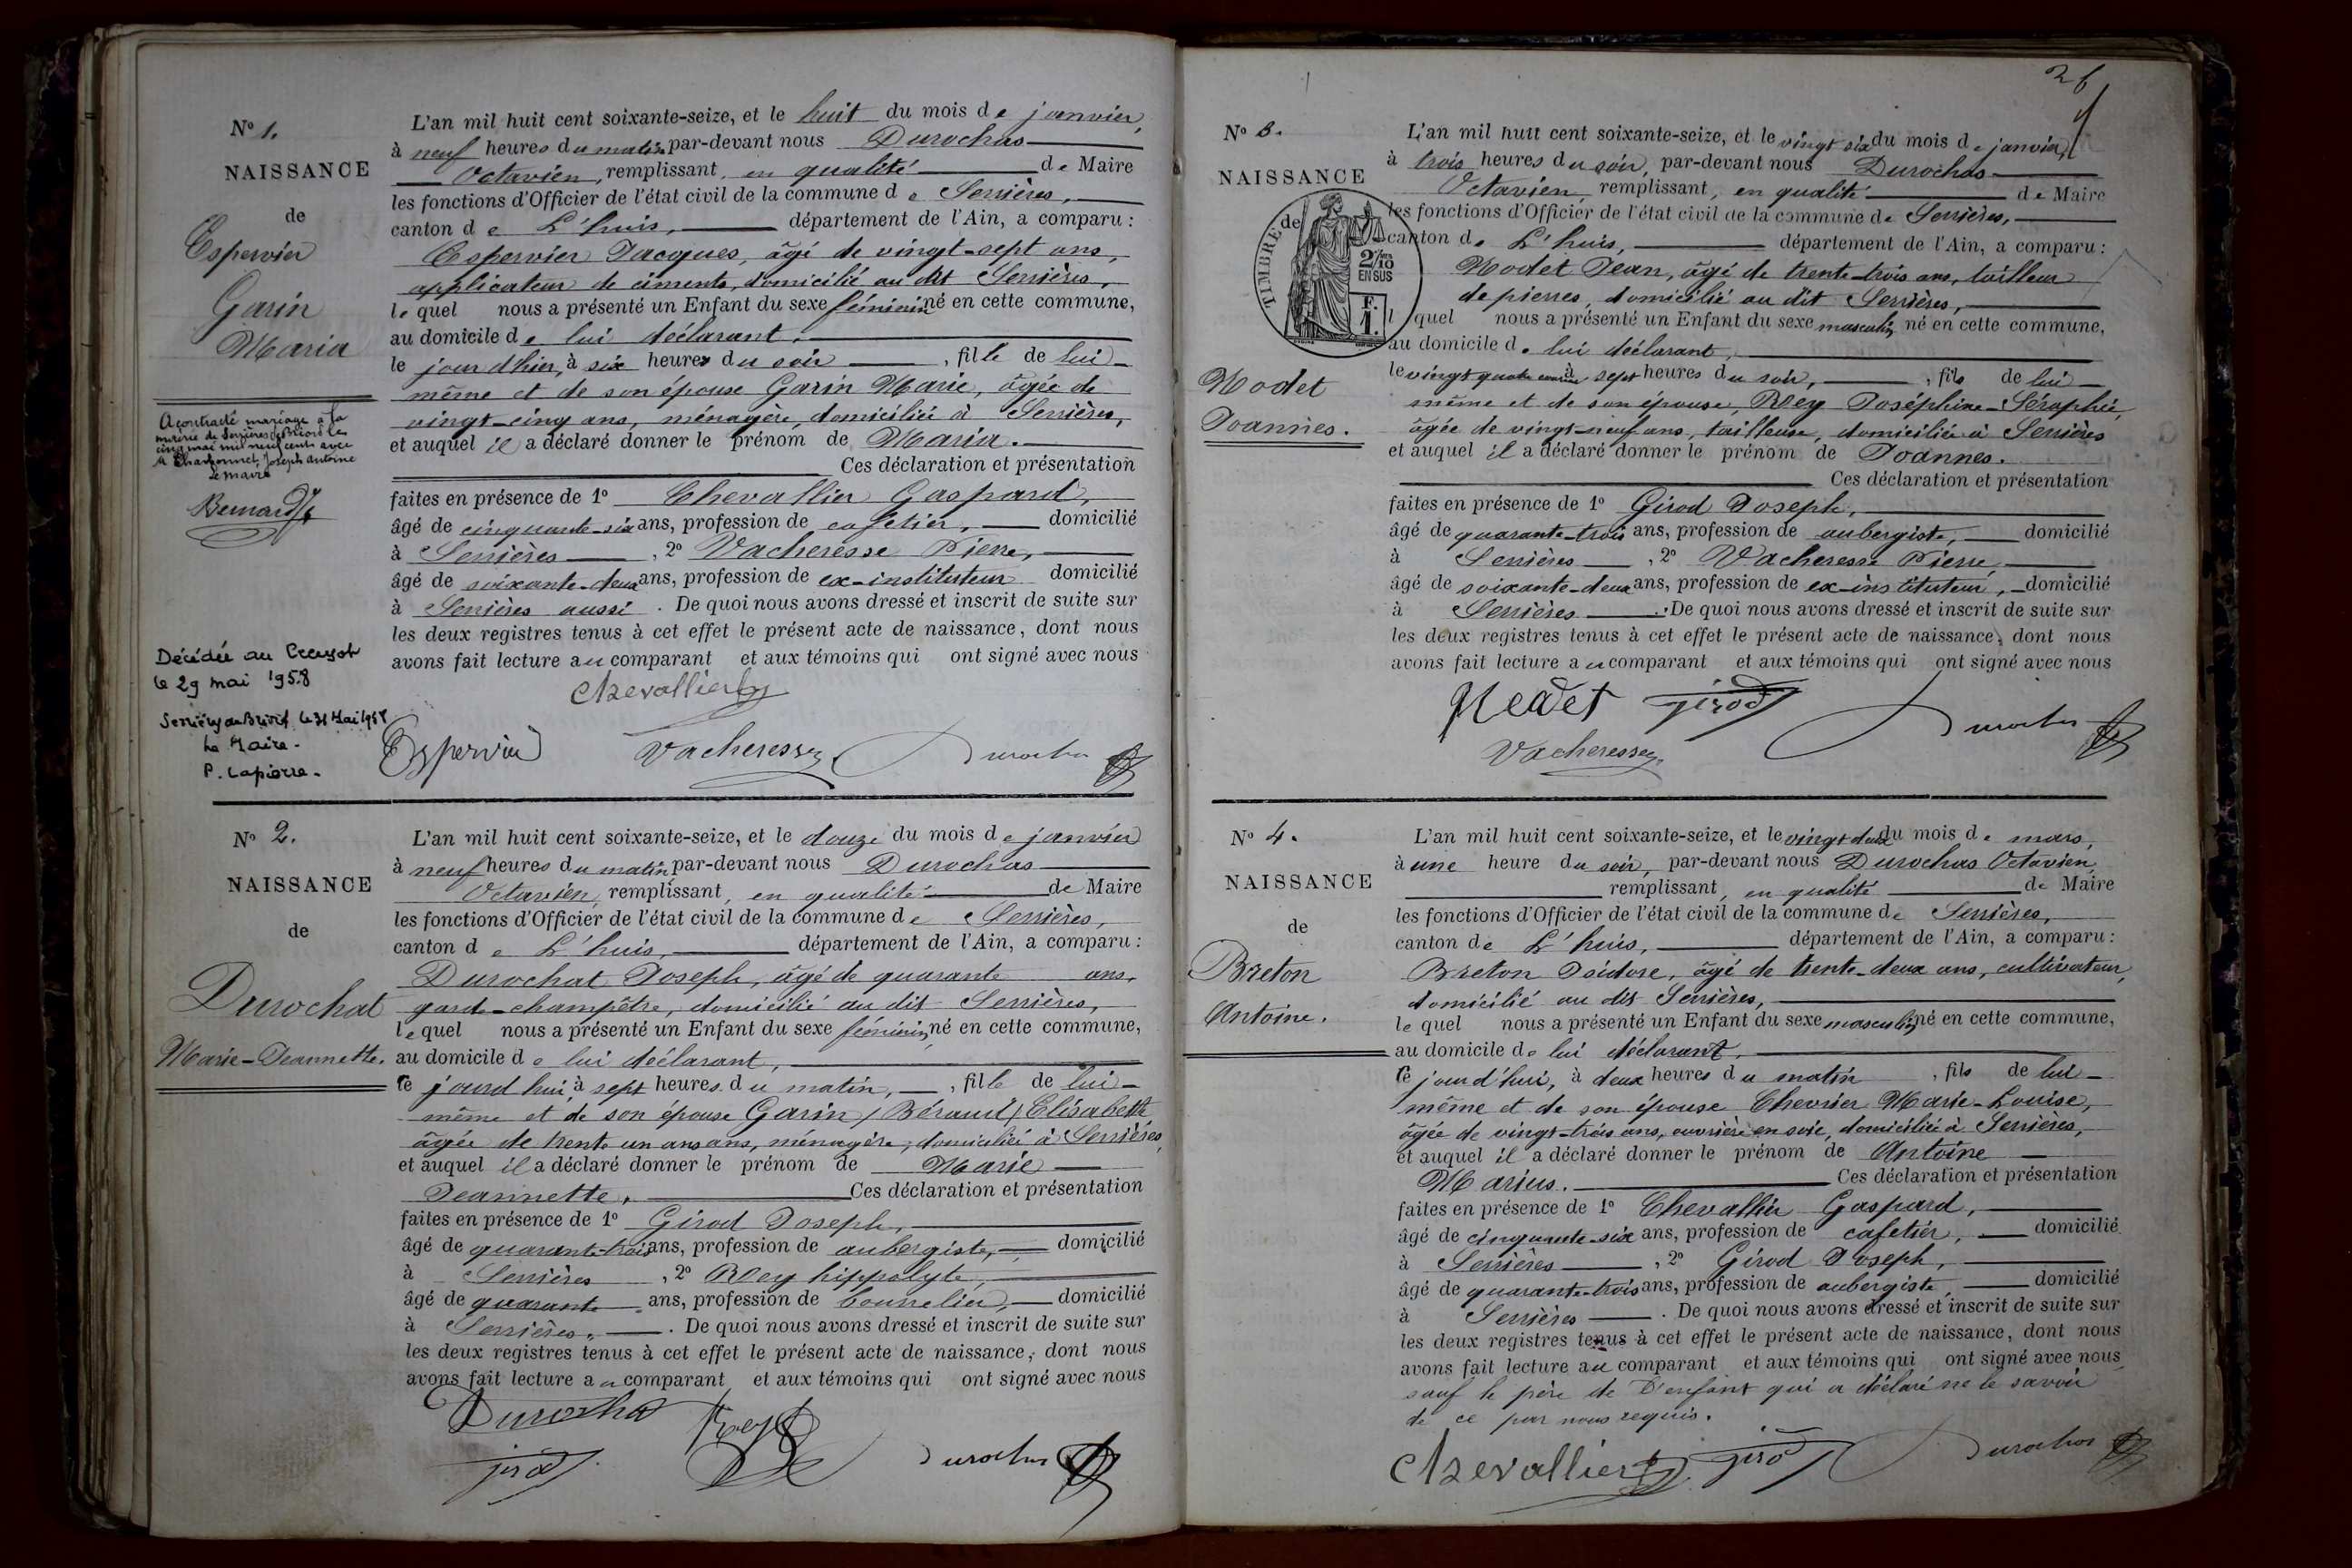 N° 1.
NAISSANCE
de
Espervier
Garin
Maria
A contracté mariage à la
mairie de Serrières de Briord le
cinq mai mil neuf cent avec
M Charbonnet, Joseph Antoine
Le maire
Bernard
Décédée au Creusot
le 29 mai 1958
Serrières de Briord le 31 Mai 1958
Le Maire -
P. Lapierre -
L'an mil huit cent soixante-seize, et le huit du mois de janvier,
à neuf heures du matin par-devant nous Durochas
Octavien, remplissant, en qualité de Maire
les fonctions d'Officier de l'état civil de la commune de Serrières,
canton de L'huis, département de l'Ain, a comparu :
Espervier Jacques, âgé de vingt-sept ans,
applicateur de ciments, domicilié au dit Serrières,
lequel nous a présenté un Enfant du sexe féminin né en cette commune,
au domicile de lui déclarant,
le jour d'hier, à six heures du soir, fille de lui-
même et de son épouse Garin Marie, âgée de
vingt-cinq ans, ménagère, domiciliée à Serrières,
et auquel il a déclaré donner le prénom de Maria.
Ces déclaration et présentation
faites en présence de 1° Chevallier Gaspard,
âgé de cinquante-six ans, profession de cafetier, domicilié
à Serrières, 2° Vacheresse Pierre,
âgé de soixante-deux ans, profession de ex-instituteur domicilié
à Serrières aussi. De quoi nous avons dressé et inscrit de suite sur
les deux registres tenus à cet effet le présent acte de naissance, dont nous
avons fait lecture au comparant et aux témoins qui ont signé avec nous
Chevallier
Espervier Vacheresse Durochas
N° 2.
NAISSANCE
de
Durochat
Marie-Jeannette.
L'an mil huit cent soixante-seize, et le douze du mois de janvier
à neuf heures du matin par-devant nous Durochas
Octavien, remplissant, en qualité de Maire
les fonctions d'Officier de l'état civil de la commune de Serrières,
canton de L'huis, département de l'Ain, a comparu :
Durochat Joseph, âgé de quarante ans,
garde-champêtre, domicilié au dit Serrières,
lequel nous a présenté un Enfant du sexe féminin né en cette commune,
au domicile de lui déclarant,
ce jourd'hui, à sept heures du matin, fille de lui-
même et de son épouse Garin (Béraud) Elisabeth
âgée de trente un ans ans, ménagère, domiciliée à Serrières,
et auquel il a déclaré donner le prénom de Marie
Jeannette. Ces déclaration et présentation
faites en présence de 1° Girod Joseph,
âgé de quarante-trois ans, profession de aubergiste, domicilié
à Serrières, 2° Rey hippolyte,
âgé de quarante ans, profession de bourrelier, domicilié
à Serrières. De quoi nous avons dressé et inscrit de suite sur
les deux registres tenus à cet effet le présent acte de naissance, dont nous
avons fait lecture au comparant et aux témoins qui ont signé avec nous
Durochat Rey
girod Durochas
26
N° 3.
NAISSANCE
de
TIMBRE
2/10
EN SUS
F.
1.
Modet
Joannes.
L'an mil huit cent soixante-seize, et le vingt six du mois de janvier,
à trois heures du soir, par-devant nous Durochas
Octavien, remplissant, en qualité de Maire
les fonctions d'Officier de l'état civil de la commune de Serrières,
canton de L'huis, département de l'Ain, a comparu :
Modet Jean, âgé de trente-trois ans, tailleur
de pierres, domicilié au dit Serrières,
lequel nous a présenté un Enfant du sexe masculin né en cette commune,
au domicile de lui déclarant,
le vingt quatre courant à sept heures du soir, fils de lui-
même et de son épouse, Rey Joséphine-Séraphie,
âgée de vingt-neuf ans, tailleuse, domiciliée à Serrières
et auquel il a déclaré donner le prénom de Joannes.
Ces déclaration et présentation
faites en présence de 1° Girod Joseph,
âgé de quarante-trois ans, profession de aubergiste, domicilié
à Serrières, 2° Vacheresse Pierre
âgé de soixante-deux ans, profession de ex-instituteur, domicilié
à Serrières. De quoi nous avons dressé et inscrit de suite sur
les deux registres tenus à cet effet le présent acte de naissance, dont nous
avons fait lecture au comparant et aux témoins qui ont signé avec nous
Modet girod Durochas
Vacheresse
N° 4.
NAISSANCE
de
Breton
Antoine.
L'an mil huit cent soixante-seize, et le vingt deux du mois de mars,
à une heure du soir, par-devant nous Durochas Octavien,
remplissant, en qualité de Maire
les fonctions d'Officier de l'état civil de la commune de Serrières,
canton de L'huis, département de l'Ain, a comparu :
Breton Isidore, âgé de trente-deux ans, cultivateur,
domicilié au dit Serrières,
lequel nous a présenté un Enfant du sexe masculin né en cette commune,
au domicile de lui déclarant,
ce jourd'hui, à deux heures du matin, fils de lui-
même et de son épouse Chevrier Marie-Louise,
âgée de vingt-trois ans, ouvrière en soie, domiciliée à Serrières,
et auquel il a déclaré donner le prénom de Antoine
Marius. Ces déclaration et présentation
faites en présence de 1° Chevallier Gaspard,
âgé de cinquante-six ans, profession de cafetier, domicilié
à Serrières, 2° Girod Joseph,
âgé de quarante-trois ans, profession de aubergiste, domicilié
à Serrières. De quoi nous avons dressé et inscrit de suite sur
les deux registres tenus à cet effet le présent acte de naissance, dont nous
avons fait lecture au comparant et aux témoins qui ont signé avec nous
sauf le père de l'enfant qui a déclaré ne le savoir
de ce par nous requis.
Chevallier girod Durochas